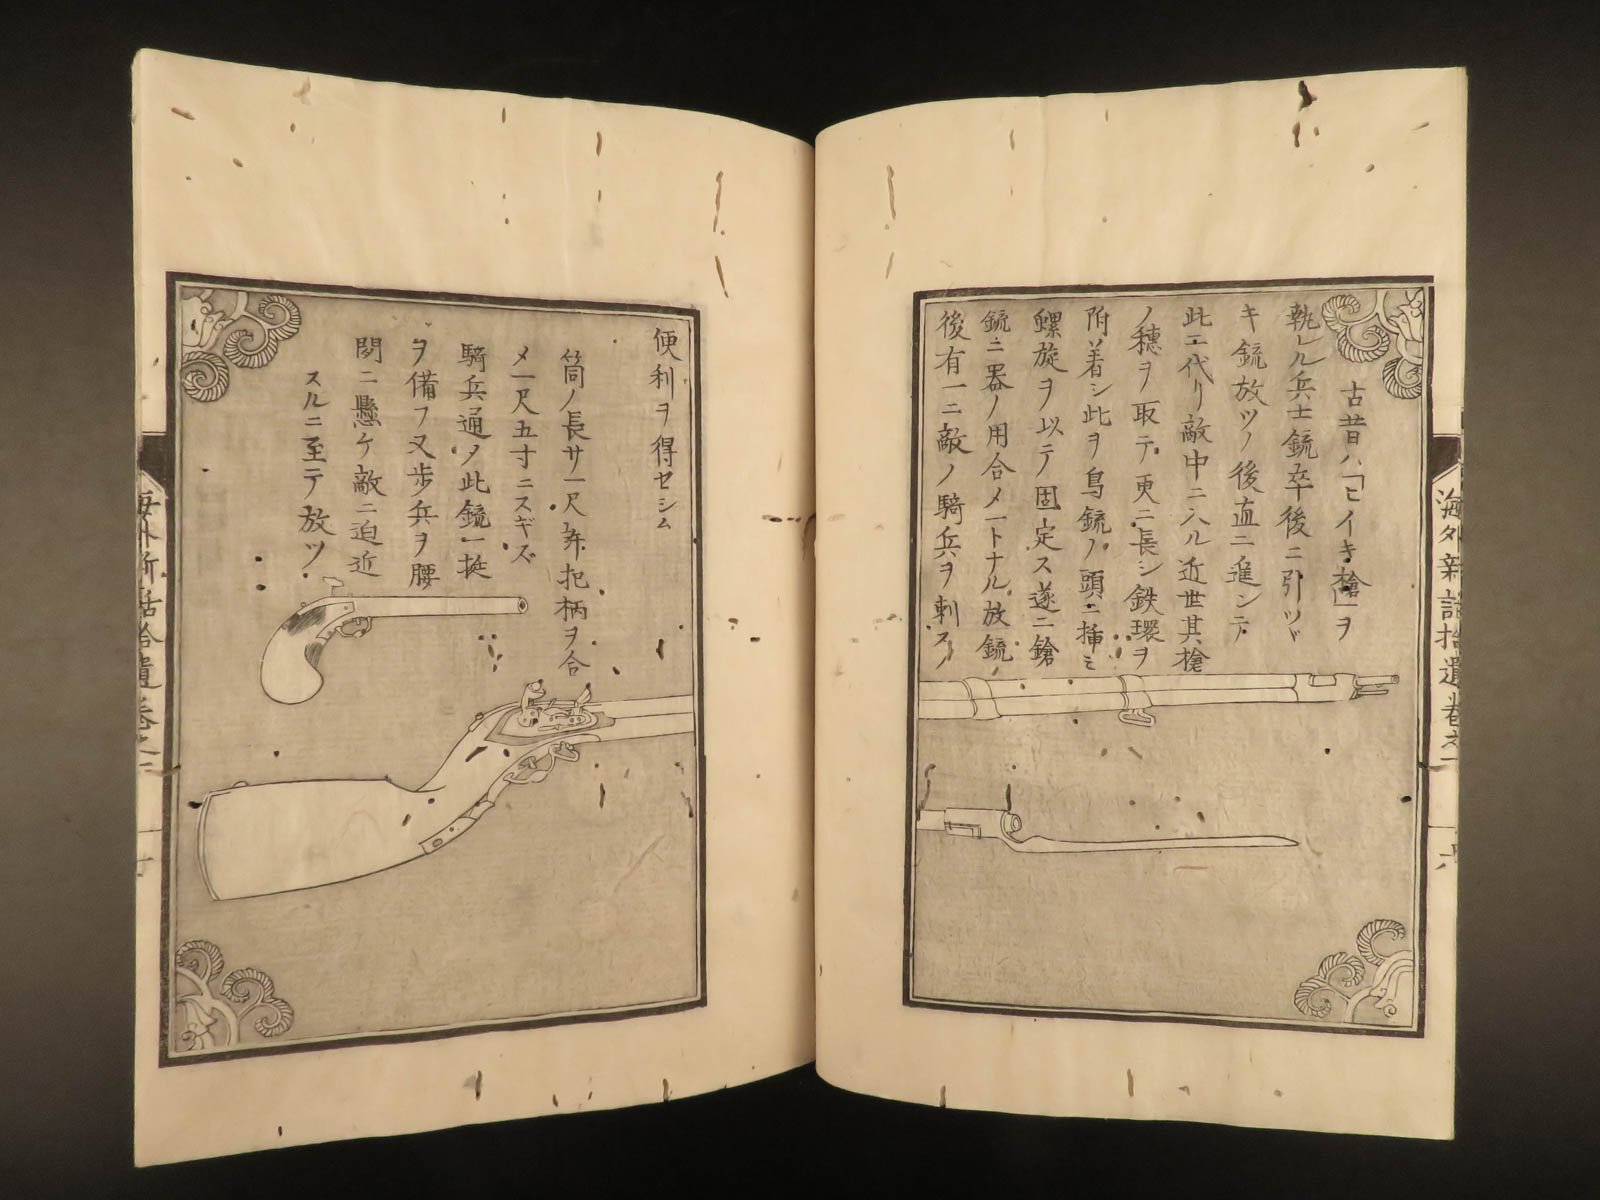 古昔ハ「ヒイキ槍」ヲ
執ル兵士銃卒後ニ引ツヾ
キ銃放ツノ後直ニ進ンテ
此ニ代リ敵中ニ入ル近世其槍
ノ穂ヲ取テ更ニ長シ鉄環ヲ
附着シ此ヲ鳥銃ノ頭ニ挿ミ
螺旋ヲ以テ固定ス遂ニ鎗
銃二器ノ用合メ一トナル放銃
後有一ニ敵ノ騎兵ヲ刺スノ
便利ヲ得セシム
筒ノ長サ一尺并把柄ヲ合
メ一尺五寸ニスギズ
騎兵通メ此銃一挺
ヲ備フ又歩兵ヲ腰
間ニ懸ケ敵ニ迫近
スルニ至テ放ツ
海外新話拾遺巻之一
六
海外新話拾遺巻之一